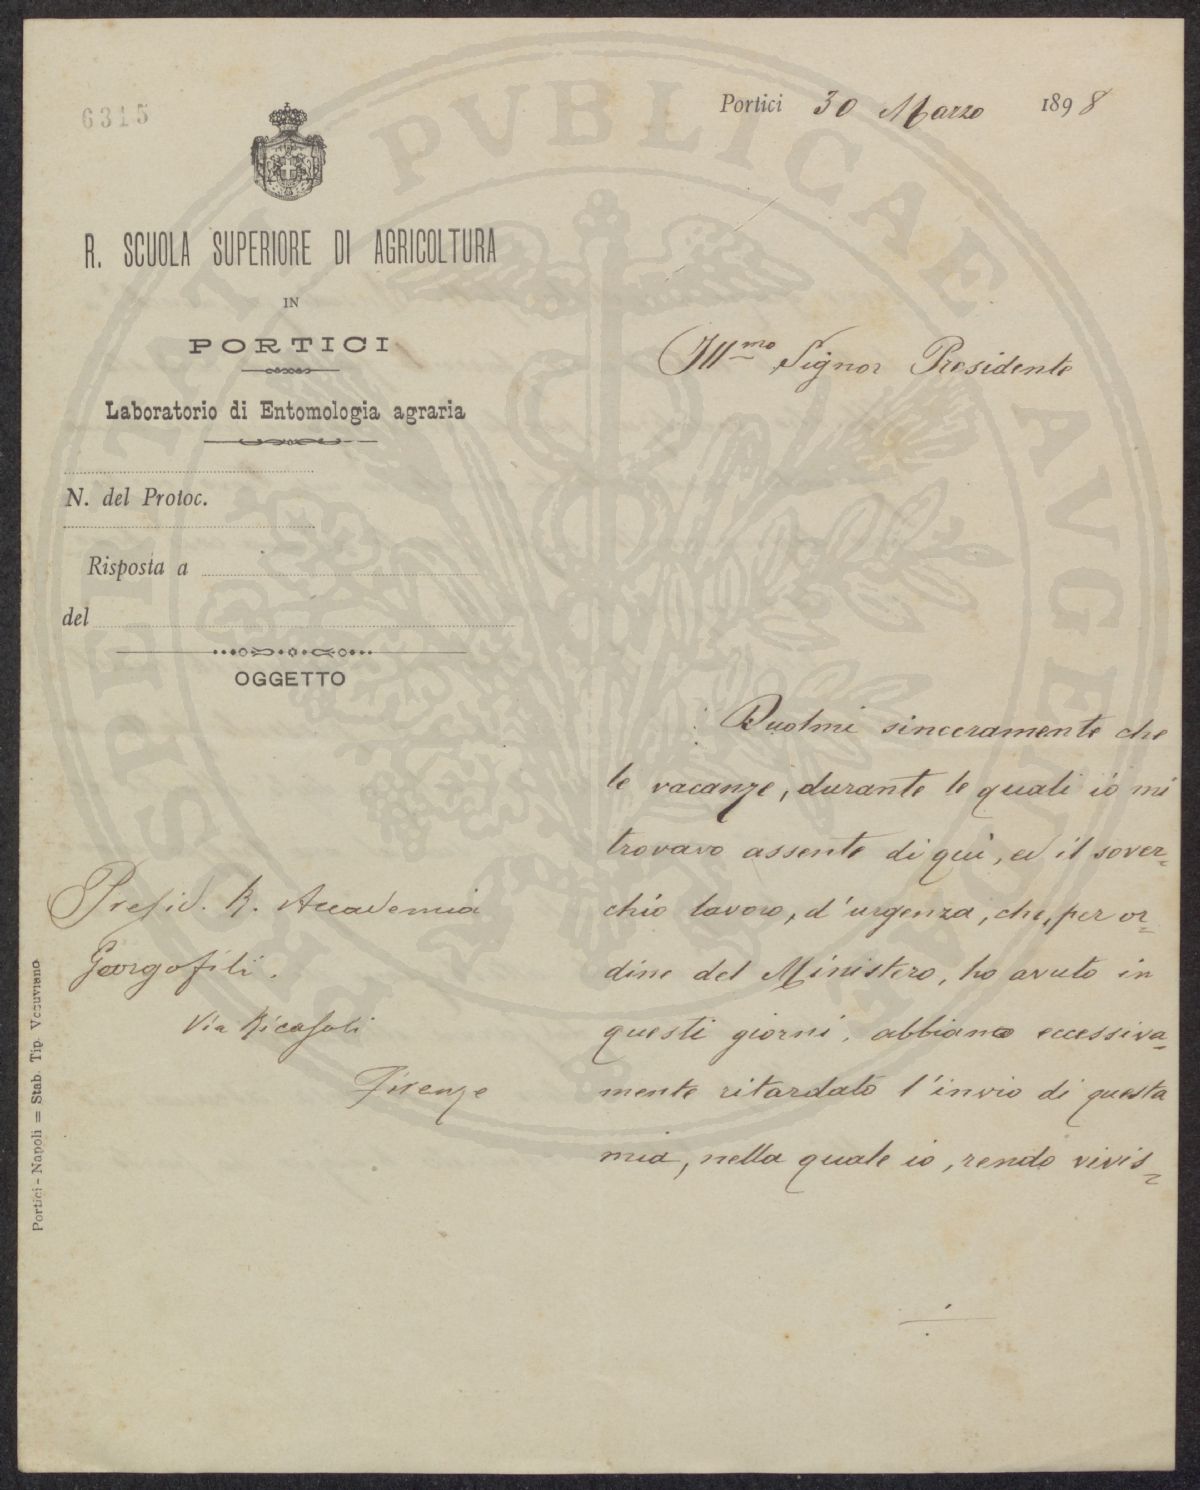 6315
Portici 30 Marzo 1898
R. SCUOLA SUPERIORE DI AGRICOLTURA
IN
PORTICI
Laboratorio di Entomologia agraria
N. del Protoc.
Risposta a
del
OGGETTO
Ill.mo Signor Presidente
Duolmi sinceramente che
le vacanze, durante le quali io mi
trovavo assente di qui, ed il sover-
chio lavoro, d'urgenza, che, per or-
dine del Ministero, ho avuto in
questi giorni, abbiano eccessiva-
mente ritardato l'invio di questa
mia, nella quale io, rendo vivis-
Presid. R. Accademia
Georgofili.
Via Ricasoli
Firenze
Portici - Napoli = Stab. Tip. Vesuviano
PROSPERITATI PVBLICAE AVGENDAE